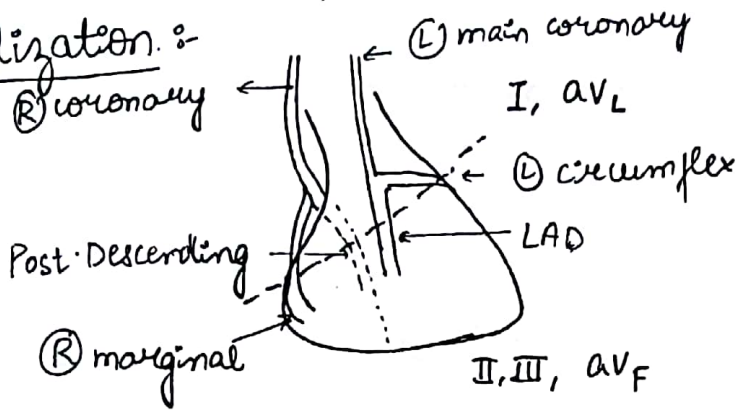 lization :-
Ⓛ main coronary
Ⓡ coronary
I, aVL
Ⓛ circumflex
LAD
Post. Descending
Ⓡ marginal
II, III, aVF